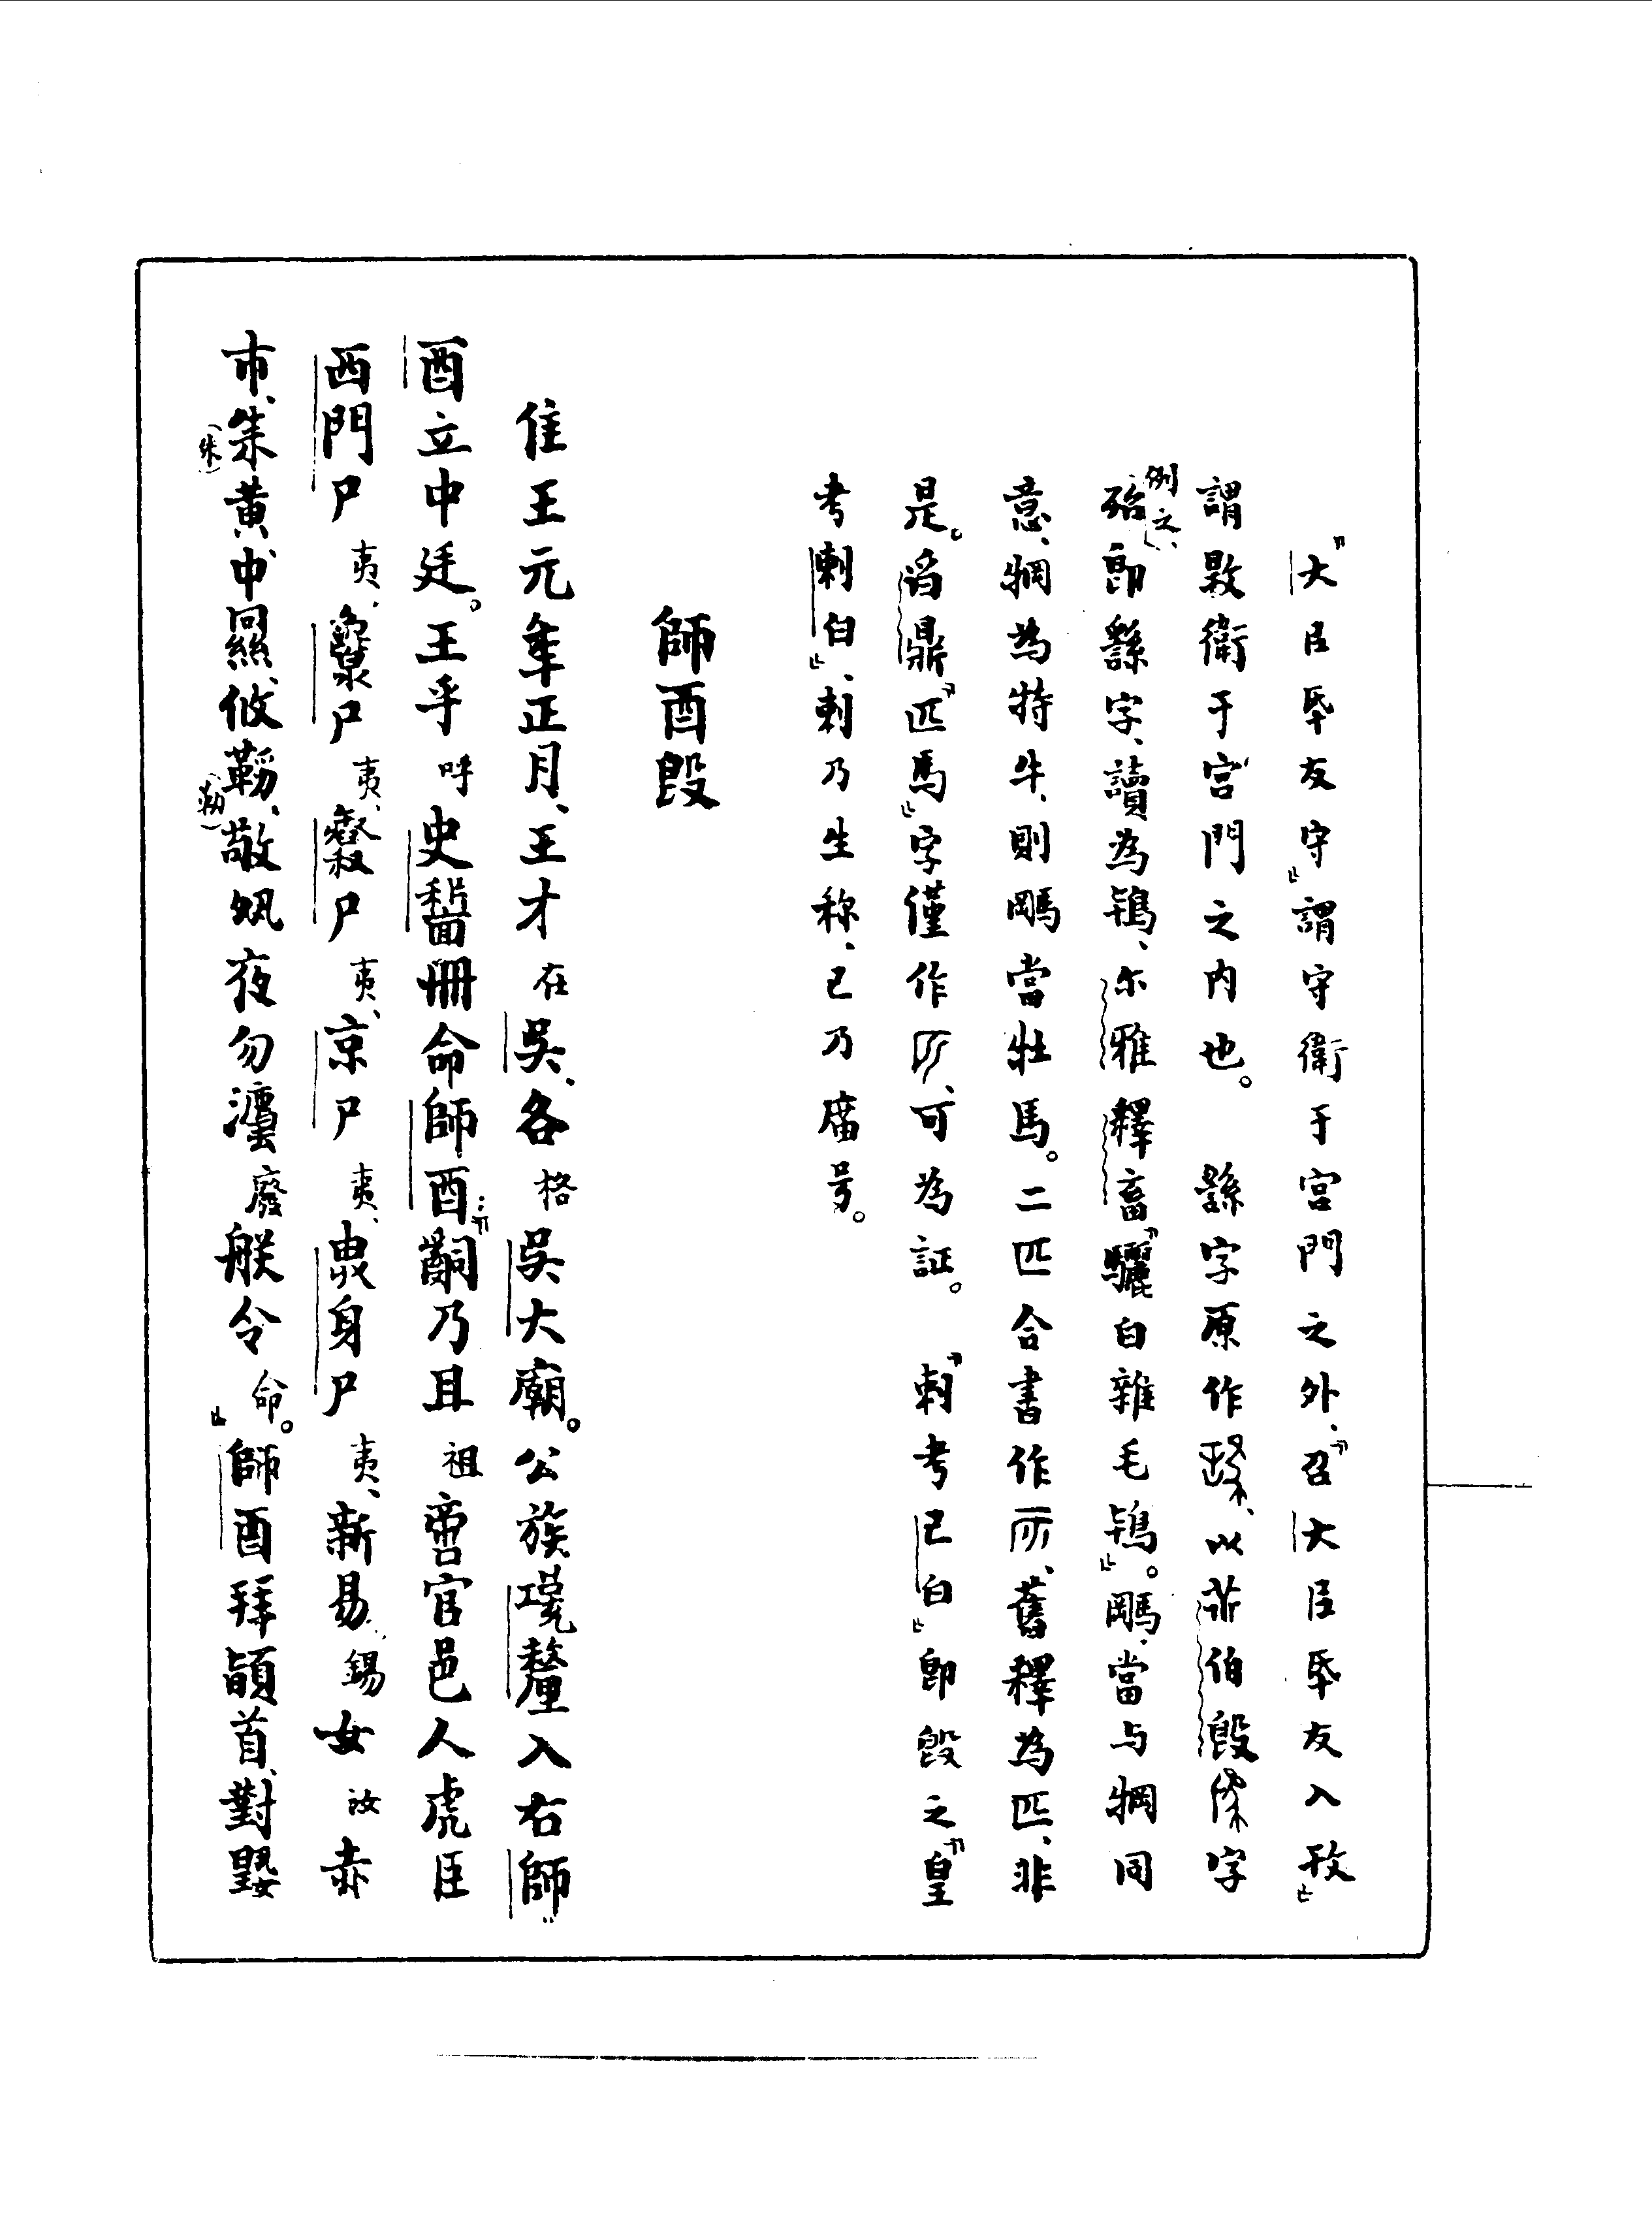 「大臣㡭友守」謂守衛于宮門之外、「召大臣㡭友入攼」
謂敦衛于宮門之內也。 繇字原作、以㳄伯𣪘字
例之、
即繇字、讀為鴇、尔雅釋畜「驪白雜毛鴇」。䮛當与犅同
意、犅為特牛、則䮛當牡馬。二匹合書作、舊釋為匹、非
是。舀鼎「匹馬」字僅作、可為証。「剌考己白」即𣪘之「皇
考剌白」、剌乃生称、己乃庙号。
師酉𣪘
隹王元年正月、王才在吳、各格吳大廟。公族𤨾釐入右師
酉立中廷。王乎呼史㽙冊命師酉:「嗣乃且祖啻官邑人虎臣
西門尸夷、尸夷、尸夷、京尸夷、身尸夷、新易錫女汝赤
巿、朱(朱)黃、中絅、攸勒(勒)、敬夙夜勿灋廢朕令命。」師酉拜𩒨首、對揚